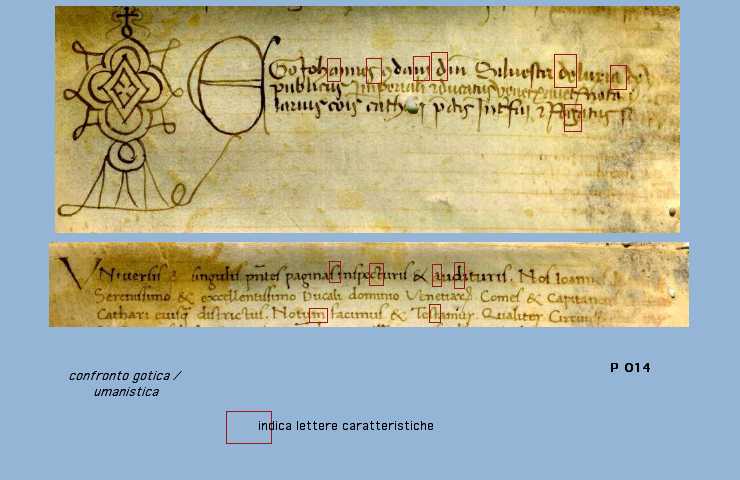 Ego Johannes qdam dni Silvestri de
publicus Imperiali ducatus Not
larius cois cath pdis Intfui & Rogatus
Niversis & singulis pntes paginas inspecturis & audituris. Nos Ioannes
Serenissimo & excellentissimo Ducali dominio Venetiarum Comes & Capitaneus
Cathari eiusq districtus. Notum facimus & Testamur. Qualiter
P 014
confronto gotica /
umanistica
indica lettere caratteristiche